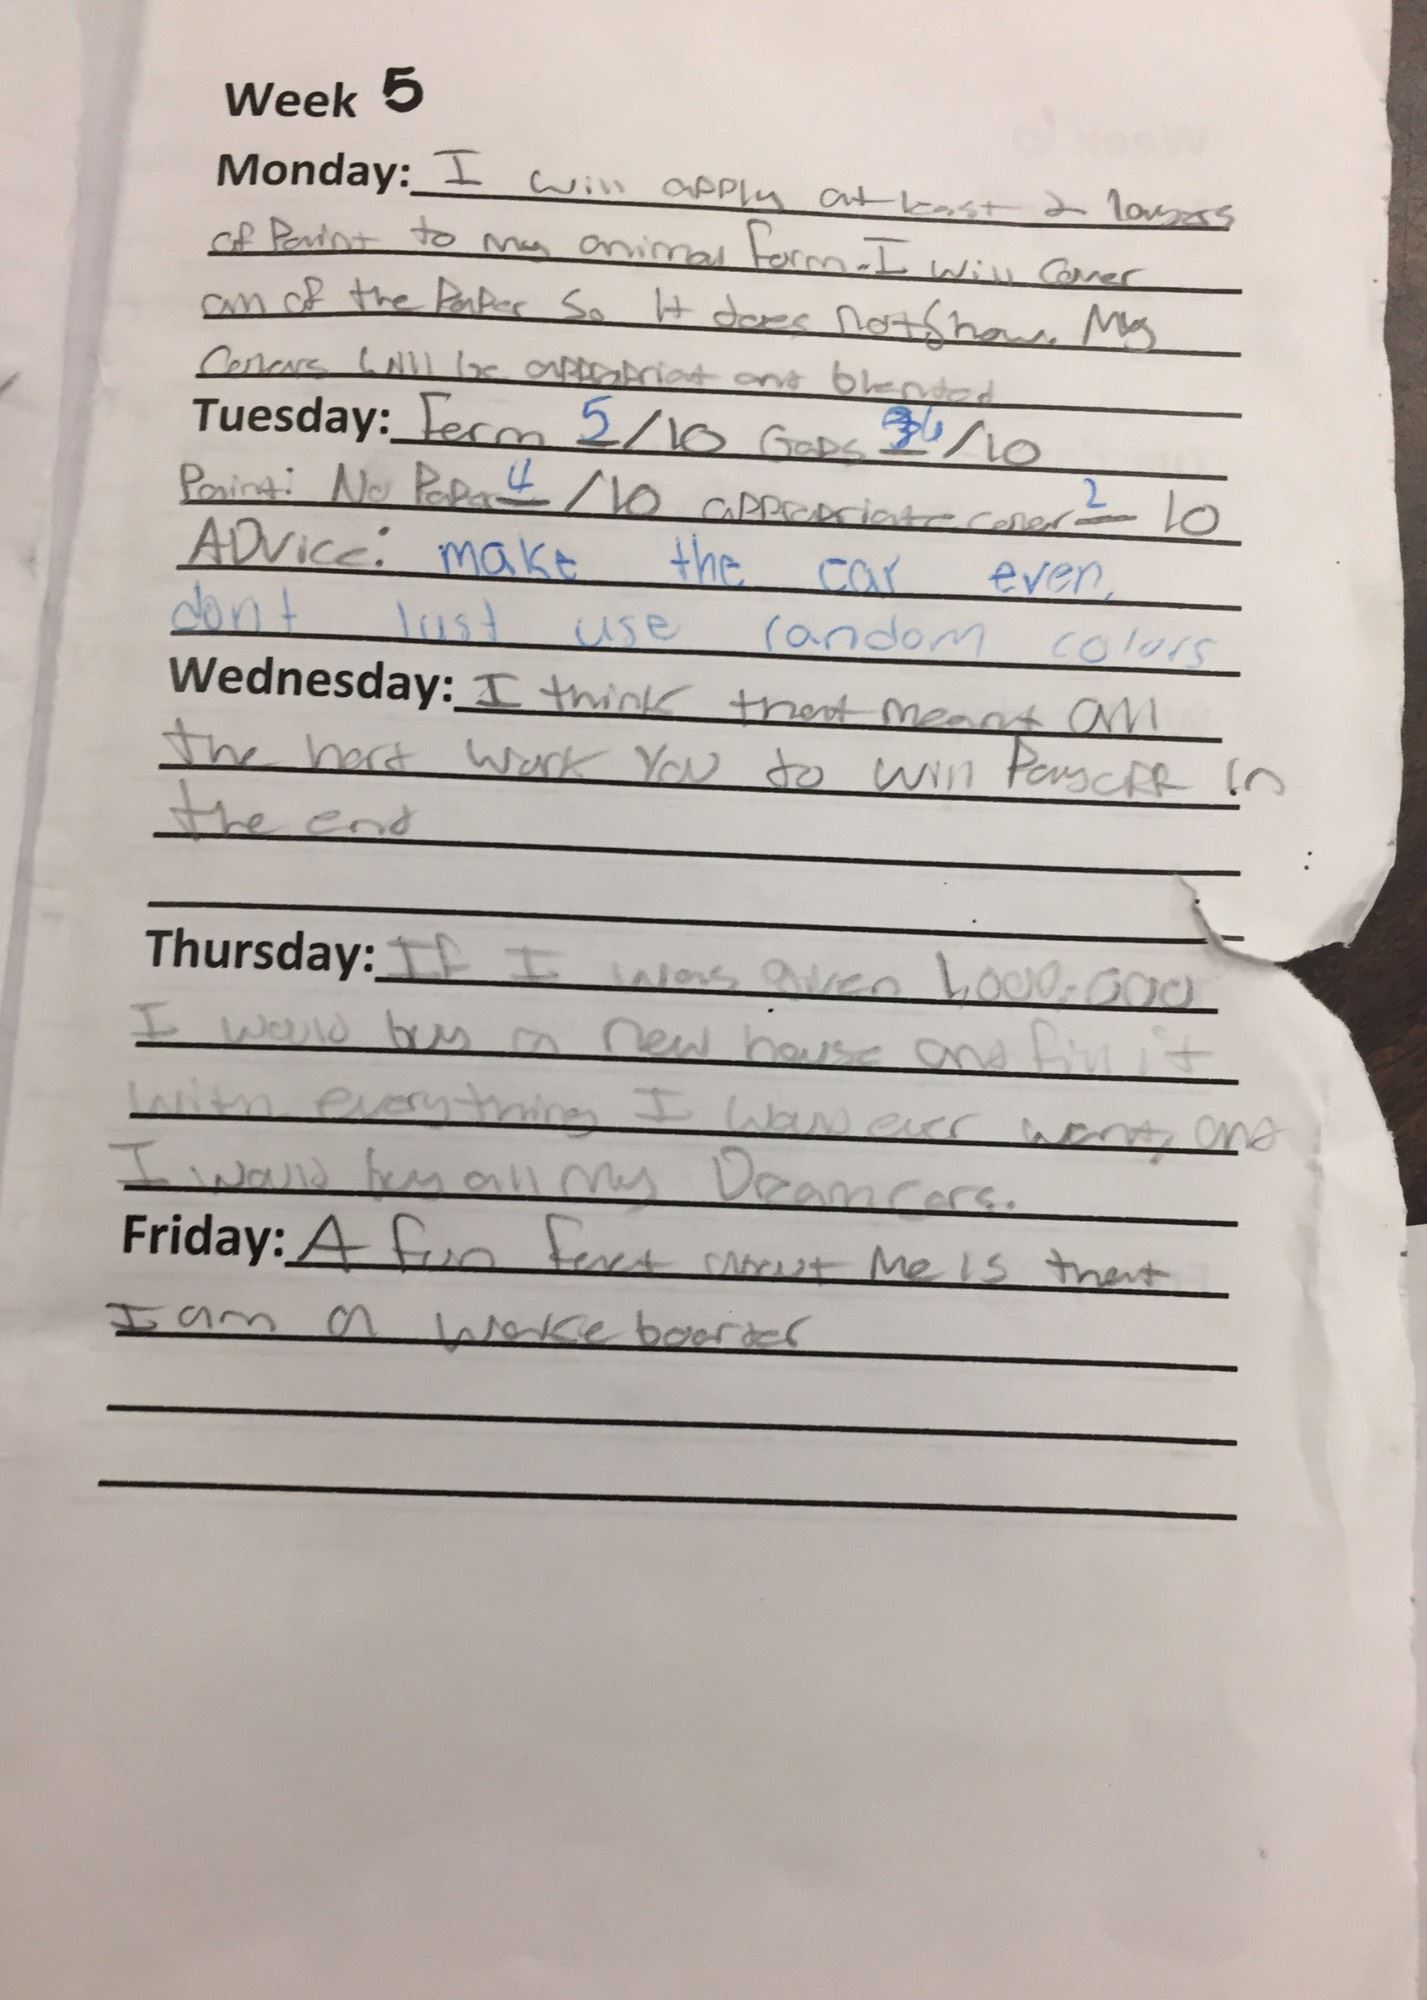 Week 5
Monday: I will apply at least 2 layers
of Paint to my animal form. I will Cover
all of the Paper So It does not Show. My
Colors will be appropriat and blended
Tuesday: Form 5/10 Gaps /10
Paint: No Paper 4/10 appropriate color 2 10
ADvice: make the car even,
dont just use random colors
Wednesday: I think that meant all
the hard work You to win in
the end
Thursday: If I was given 1,000,000
I would buy a new house and fill it
with everything I would ever want, and
I would buy all my Dream cars.
Friday: A fun fact about Me is that
I am a wakeboarder